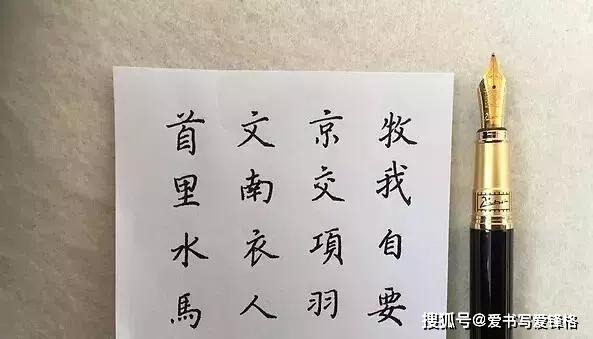 首文京牧
里南交我
水衣項自
馬人羽要
搜狐号@爱书写爱锋格